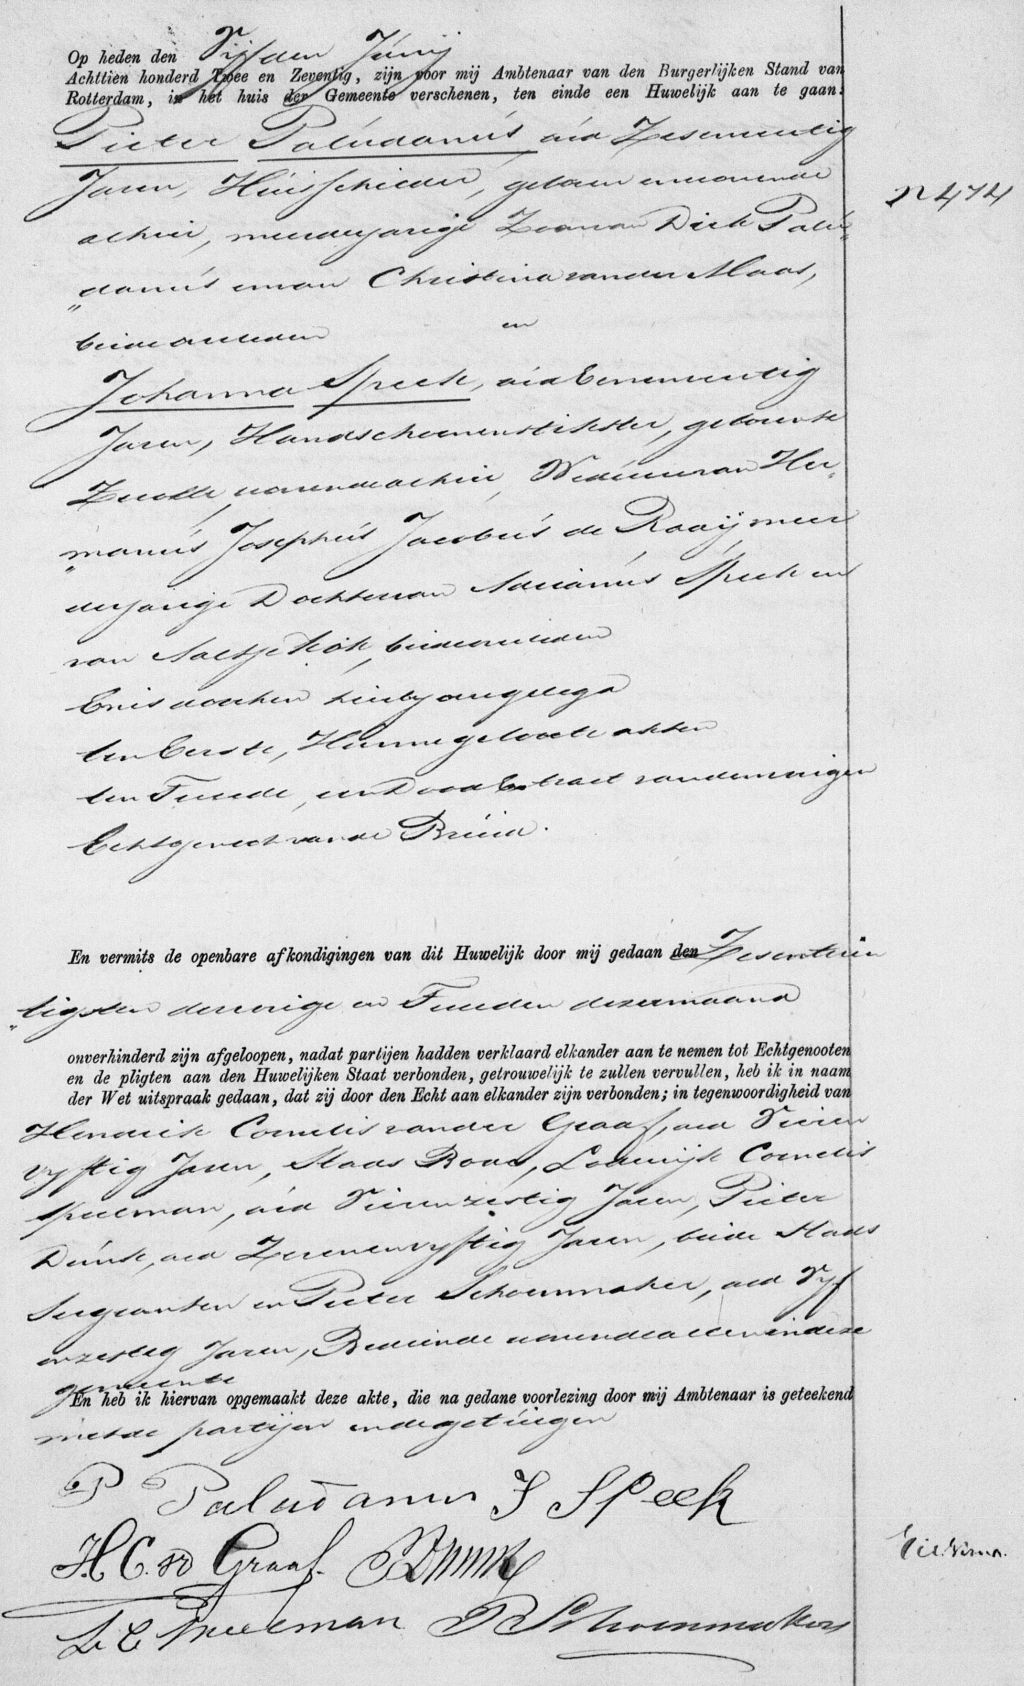 Op heden den Vijfden Junij
Achttien honderd Twee en Zeventig, zijn voor mij Ambtenaar van den Burgerlijken Stand van
Rotterdam, in het huis der Gemeente verschenen, ten einde een Huwelijk aan te gaan:
Pieter Paludanus oud Zesenveertig
Jaren, Huisschilder, geboren en wonende
alhier, meerderjarige Zoon van Dirk Palu„
„danus en van Christina van der Maas,
beide overleden en
Johanna Speek, oud Eenenveertig
Jaren, Handschoenenstikster, geboren te
Zwolle, wonende alhier, Weduwe van Her„
„manus Josephus Jacobus de Raaij, meer
derjarige Dochter van Adrianus Speek en
van Aaltje Kok, beide overleden
En is door hen hierbij overgelegd
ten Eerste, Hunne geboorte akten
ten Tweede, een Dood Extract van den vorigen
Echtgenoot van de Bruid.
n 474
En vermits de openbare afkondigingen van dit Huwelijk door mij gedaan den Zesentwin
„tigsten der vorige en Tweeden dezer maand
onverhinderd zijn afgeloopen, nadat partijen hadden verklaard elkander aan te nemen tot Echtgenooten
en de pligten aan den Huwelijken Staat verbonden, getrouwelijk te zullen vervullen, heb ik in naam
der Wet uitspraak gedaan, dat zij door den Echt aan elkander zijn verbonden; in tegenwoordigheid van
Hendrik Cornelis van der Graaf, oud Vieren
vyftig Jaren, Stads Bode, Lodewijk Cornelis
Speelman, oud Vierenzestig Jaren, Pieter
Dunk, oud Zevenenvyftig Jaren, beide Stads
Sergeanten en Pieter Schoenmaker, oud Vyf
enzestig Jaren, Bediende wonende allen in deze
gemeente
En heb ik hiervan opgemaakt deze akte, die na gedane voorlezing door mij Ambtenaar is geteekend
met de partijen en de getuigen
P Paludanus J Speek
H. C. vd Graaf. P Dunk
L. C. Speelman P Schoenmakers